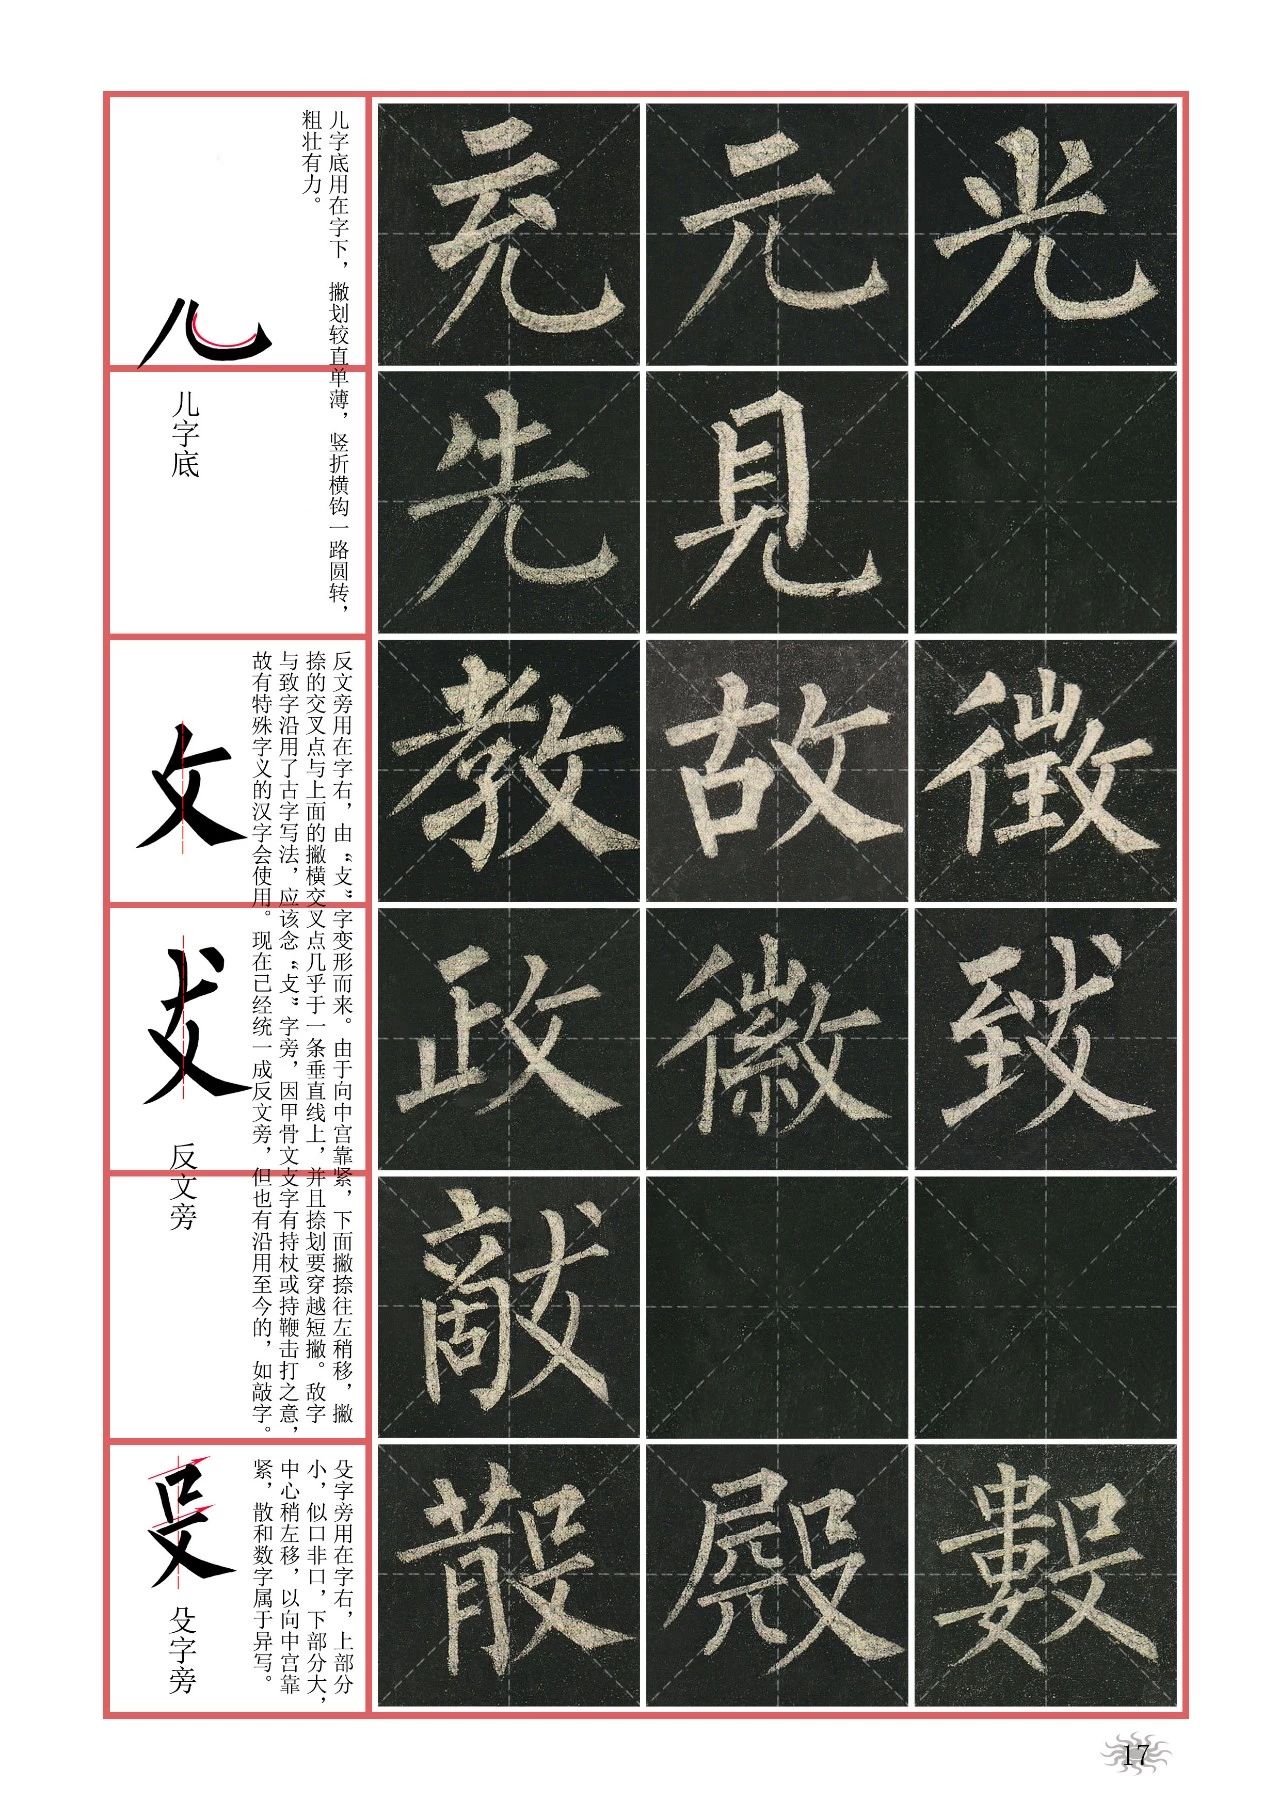 儿字底用在字下，撇划较直单薄，竖折横钩一路圆转，
粗壮有力。
儿
儿字底
充元光
先見
反文旁用在字右，由“攴”字变形而来。由于向中宫靠紧，下面撇捺往左稍移，撇
捺的交叉点与上面的撇横交叉点几乎于一条垂直线上，并且捺划要穿越短撇。敌字
与致字沿用了古字写法，应该念“攴”字旁，因甲骨文攴字有持杖或持鞭击打之意，
故有特殊字义的汉字会使用。现在已经统一成反文旁，但也有沿用至今的，如敲字。
攵
攴
反文旁
教故徵
政徽致
敵
殳字旁用在字右，上部分
小，似口非口，下部分大，
中心稍左移，以向中宫靠
紧，散和数字属于异写。
殳
殳字旁
散殿數
17